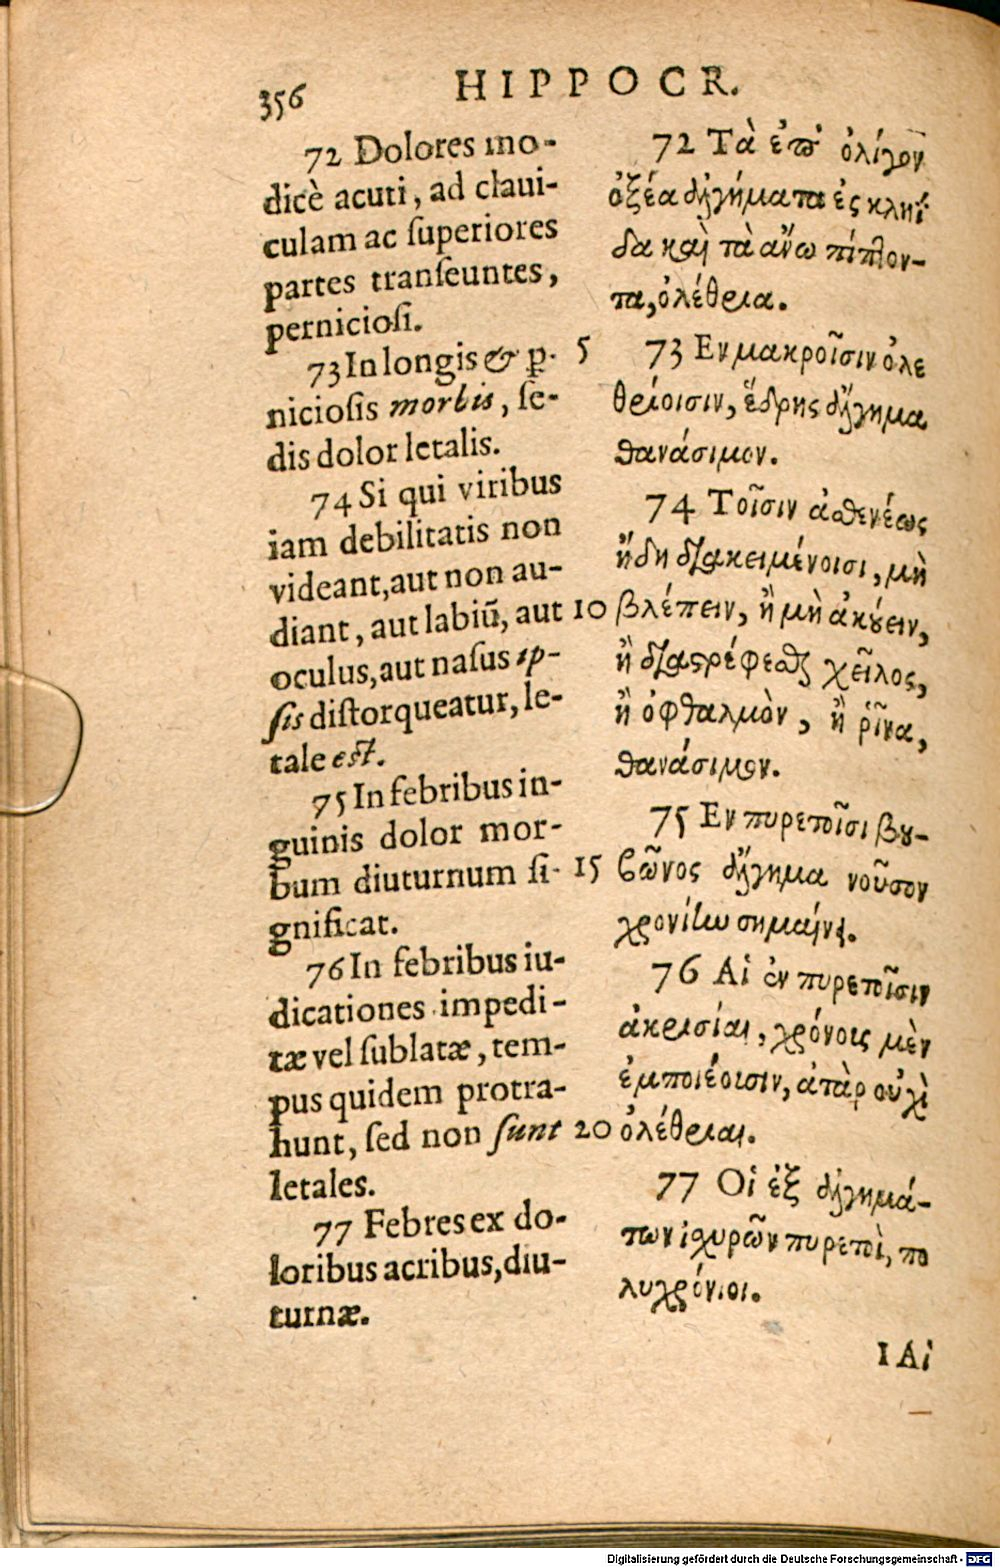 356
HIPPOCR.
72 Dolores mo-
dicè acuti, ad claui-
culam ac ſuperiores
partes tranſeuntes,
pernicioſi.
73 In longis & ꝑ-
niciosis morbis, ſe-
dis dolor letalis.
74 Si qui viribus
iam debilitatis non
videant, aut non au-
diant, aut labiũ, aut
oculus, aut naſus ip-
ſis diſtorqueatur, le-
tale eſt.
75 In febribus in-
guinis dolor mor-
bum diuturnum ſi-
gnificat.
76 In febribus iu-
dicationes impedi-
tæ vel ſublatæ, tem-
pus quidem protra-
hunt, ſed non ſunt
letales.
77 Febres ex do-
loribus acribus, diu-
turnæ.
5
10
15
20
72 Τὰ ἐπ' ὀλίγον
ὀξέα ἀλγήματα ἐς κληΐ
δα καὶ τὰ ἄνω πίπτον-
τα, ὀλέθρια.
73 Εν μακροῖσιν ὀλε
θρίοισιν, ἕδρης ἄλγημα
θανάσιμον.
74 Τοῖσιν ἀσθενέως
ἤδη διακειμένοισι, μὴ
βλέπειν, ἢ μὴ ἀκούειν,
ἢ διαστρέφεσθαι χεῖλος,
ἢ ὀφθαλμὸν, ἢ ῥῖνα,
θανάσιμον.
75 Εν πυρετοῖσι βου-
βῶνος ἄλγημα νοῦσον
χρονίην σημαίνει.
76 Αἱ ἐν πυρετοῖσιν
ἀκρισίαι, χρόνοις μὲν
ἐμποιέοισιν, ἀτὰρ οὐχὶ
ὀλέθριαι.
77 Οἱ ἐξ ἀλγημά-
των ἰσχυρῶν πυρετοὶ, πο
λυχρόνιοι.
1 Αἱ
Digitalisierung gefördert durch die Deutsche Forschungsgemeinschaft - DFG